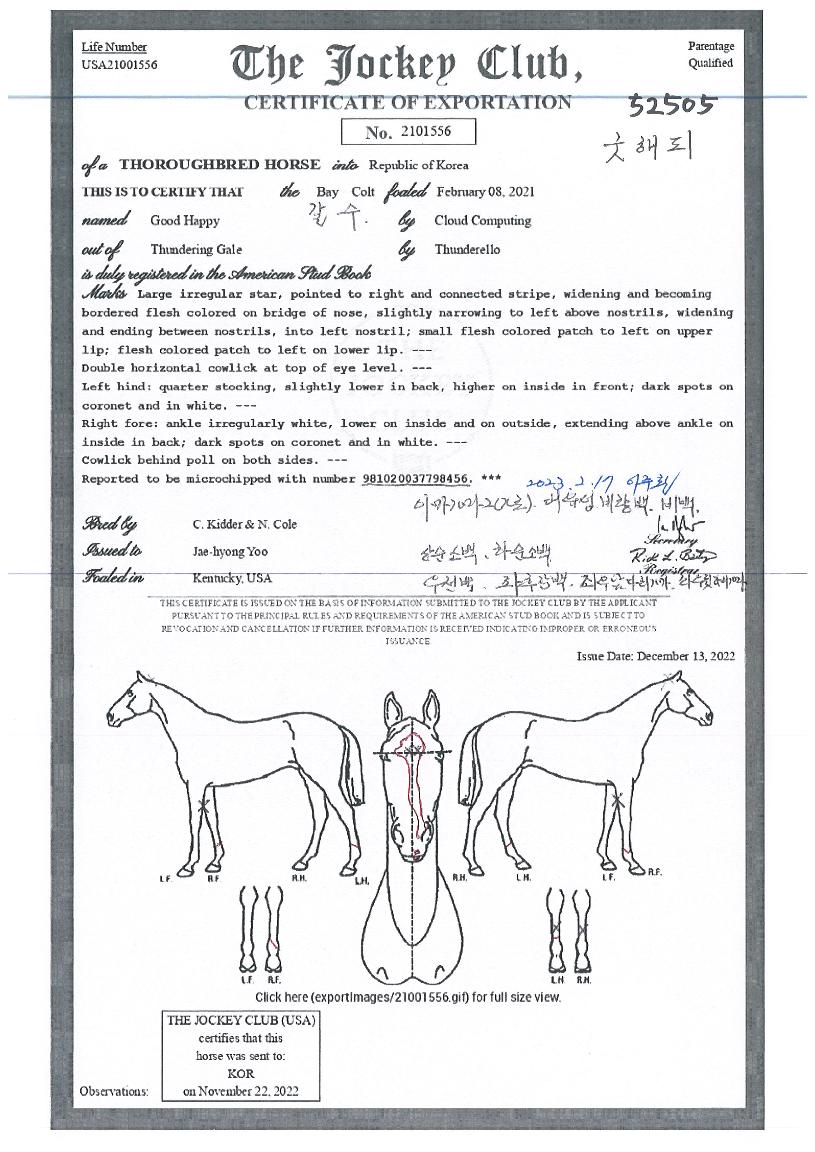 Life Number
USA21001556
The Jockey Club,
Parentage
Qualified
CERTIFICATE OF EXPORTATION
52505
No. 2101556
굿해피
of a THOROUGHBRED HORSE into Republic of Korea
THIS IS TO CERTIFY THAT the Bay Colt foaled February 08, 2021
갈 수.
named Good Happy by Cloud Computing
out of Thundering Gale by Thunderello
is duly registered in the American Stud Book
Marks Large irregular star, pointed to right and connected stripe, widening and becoming
bordered flesh colored on bridge of nose, slightly narrowing to left above nostrils, widening
and ending between nostrils, into left nostril; small flesh colored patch to left on upper
lip; flesh colored patch to left on lower lip. ---
Double horizontal cowlick at top of eye level. ---
Left hind: quarter stocking, slightly lower in back, higher on inside in front; dark spots on
coronet and in white. ---
Right fore: ankle irregularly white, lower on inside and on outside, extending above ankle on
inside in back; dark spots on coronet and in white. ---
Cowlick behind poll on both sides. ---
Reported to be microchipped with number 981020037798456. ***
2023. 2. 17
비백.
Bred by C. Kidder & N. Cole
Secretary
Issued to Jae-hyong Yoo
상순소백. 하순소백
Registrar
Foaled in Kentucky, USA
THIS CERTIFICATE IS ISSUED ON THE BASIS OF INFORMATION SUBMITTED TO THE JOCKEY CLUB BY THE APPLICANT
PURSUANT TO THE PRINCIPAL RULES AND REQUIREMENTS OF THE AMERICAN STUD BOOK AND IS SUBJECT TO
REVOCATION AND CANCELLATION IF FURTHER INFORMATION IS RECEIVED INDICATING IMPROPER OR ERRONEOUS
ISSUANCE
Issue Date: December 13, 2022
L.F. R.F. R.H. L.H. R.H. L.H. L.F. R.F.
L.F. R.F. L.H. R.H.
Click here (exportImages/21001556.gif) for full size view.
THE JOCKEY CLUB (USA)
certifies that this
horse was sent to:
KOR
Observations: on November 22, 2022